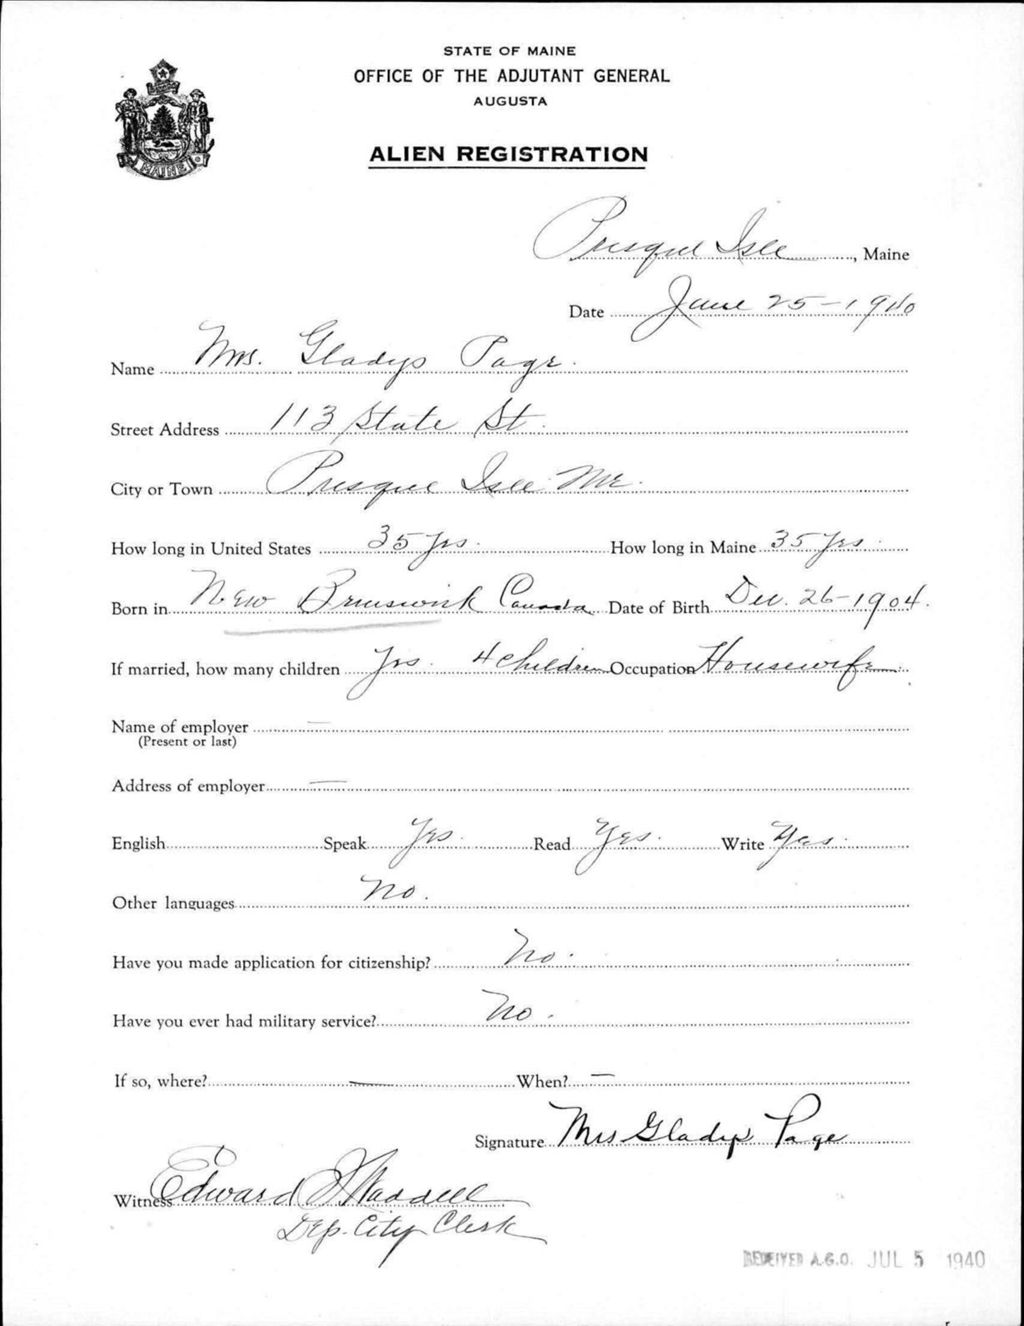 STATE OF MAINE
OFFICE OF THE ADJUTANT GENERAL
AUGUSTA
ALIEN REGISTRATION
MAINE
Presque Isle, Maine
Date June 25-1940
Name Mrs. Gladys Page.
Street Address 113 State St.
City or Town Presque Isle Me.
How long in United States 35 yrs. How long in Maine 35 yrs.
Born in New Brunswick Canada Date of Birth Dec. 26-1904.
If married, how many children Yes. 4 children Occupation Housewife.
Name of employer —
(Present or last)
Address of employer —
English Speak Yes. Read Yes. Write Yes.
Other languages No.
Have you made application for citizenship? No.
Have you ever had military service? No.
If so, where? — When? —
Signature Mrs Gladys Page
Witness Edward J. Waddell
Dep. City Clerk
RECEIVED A.G.O. JUL 5 1940